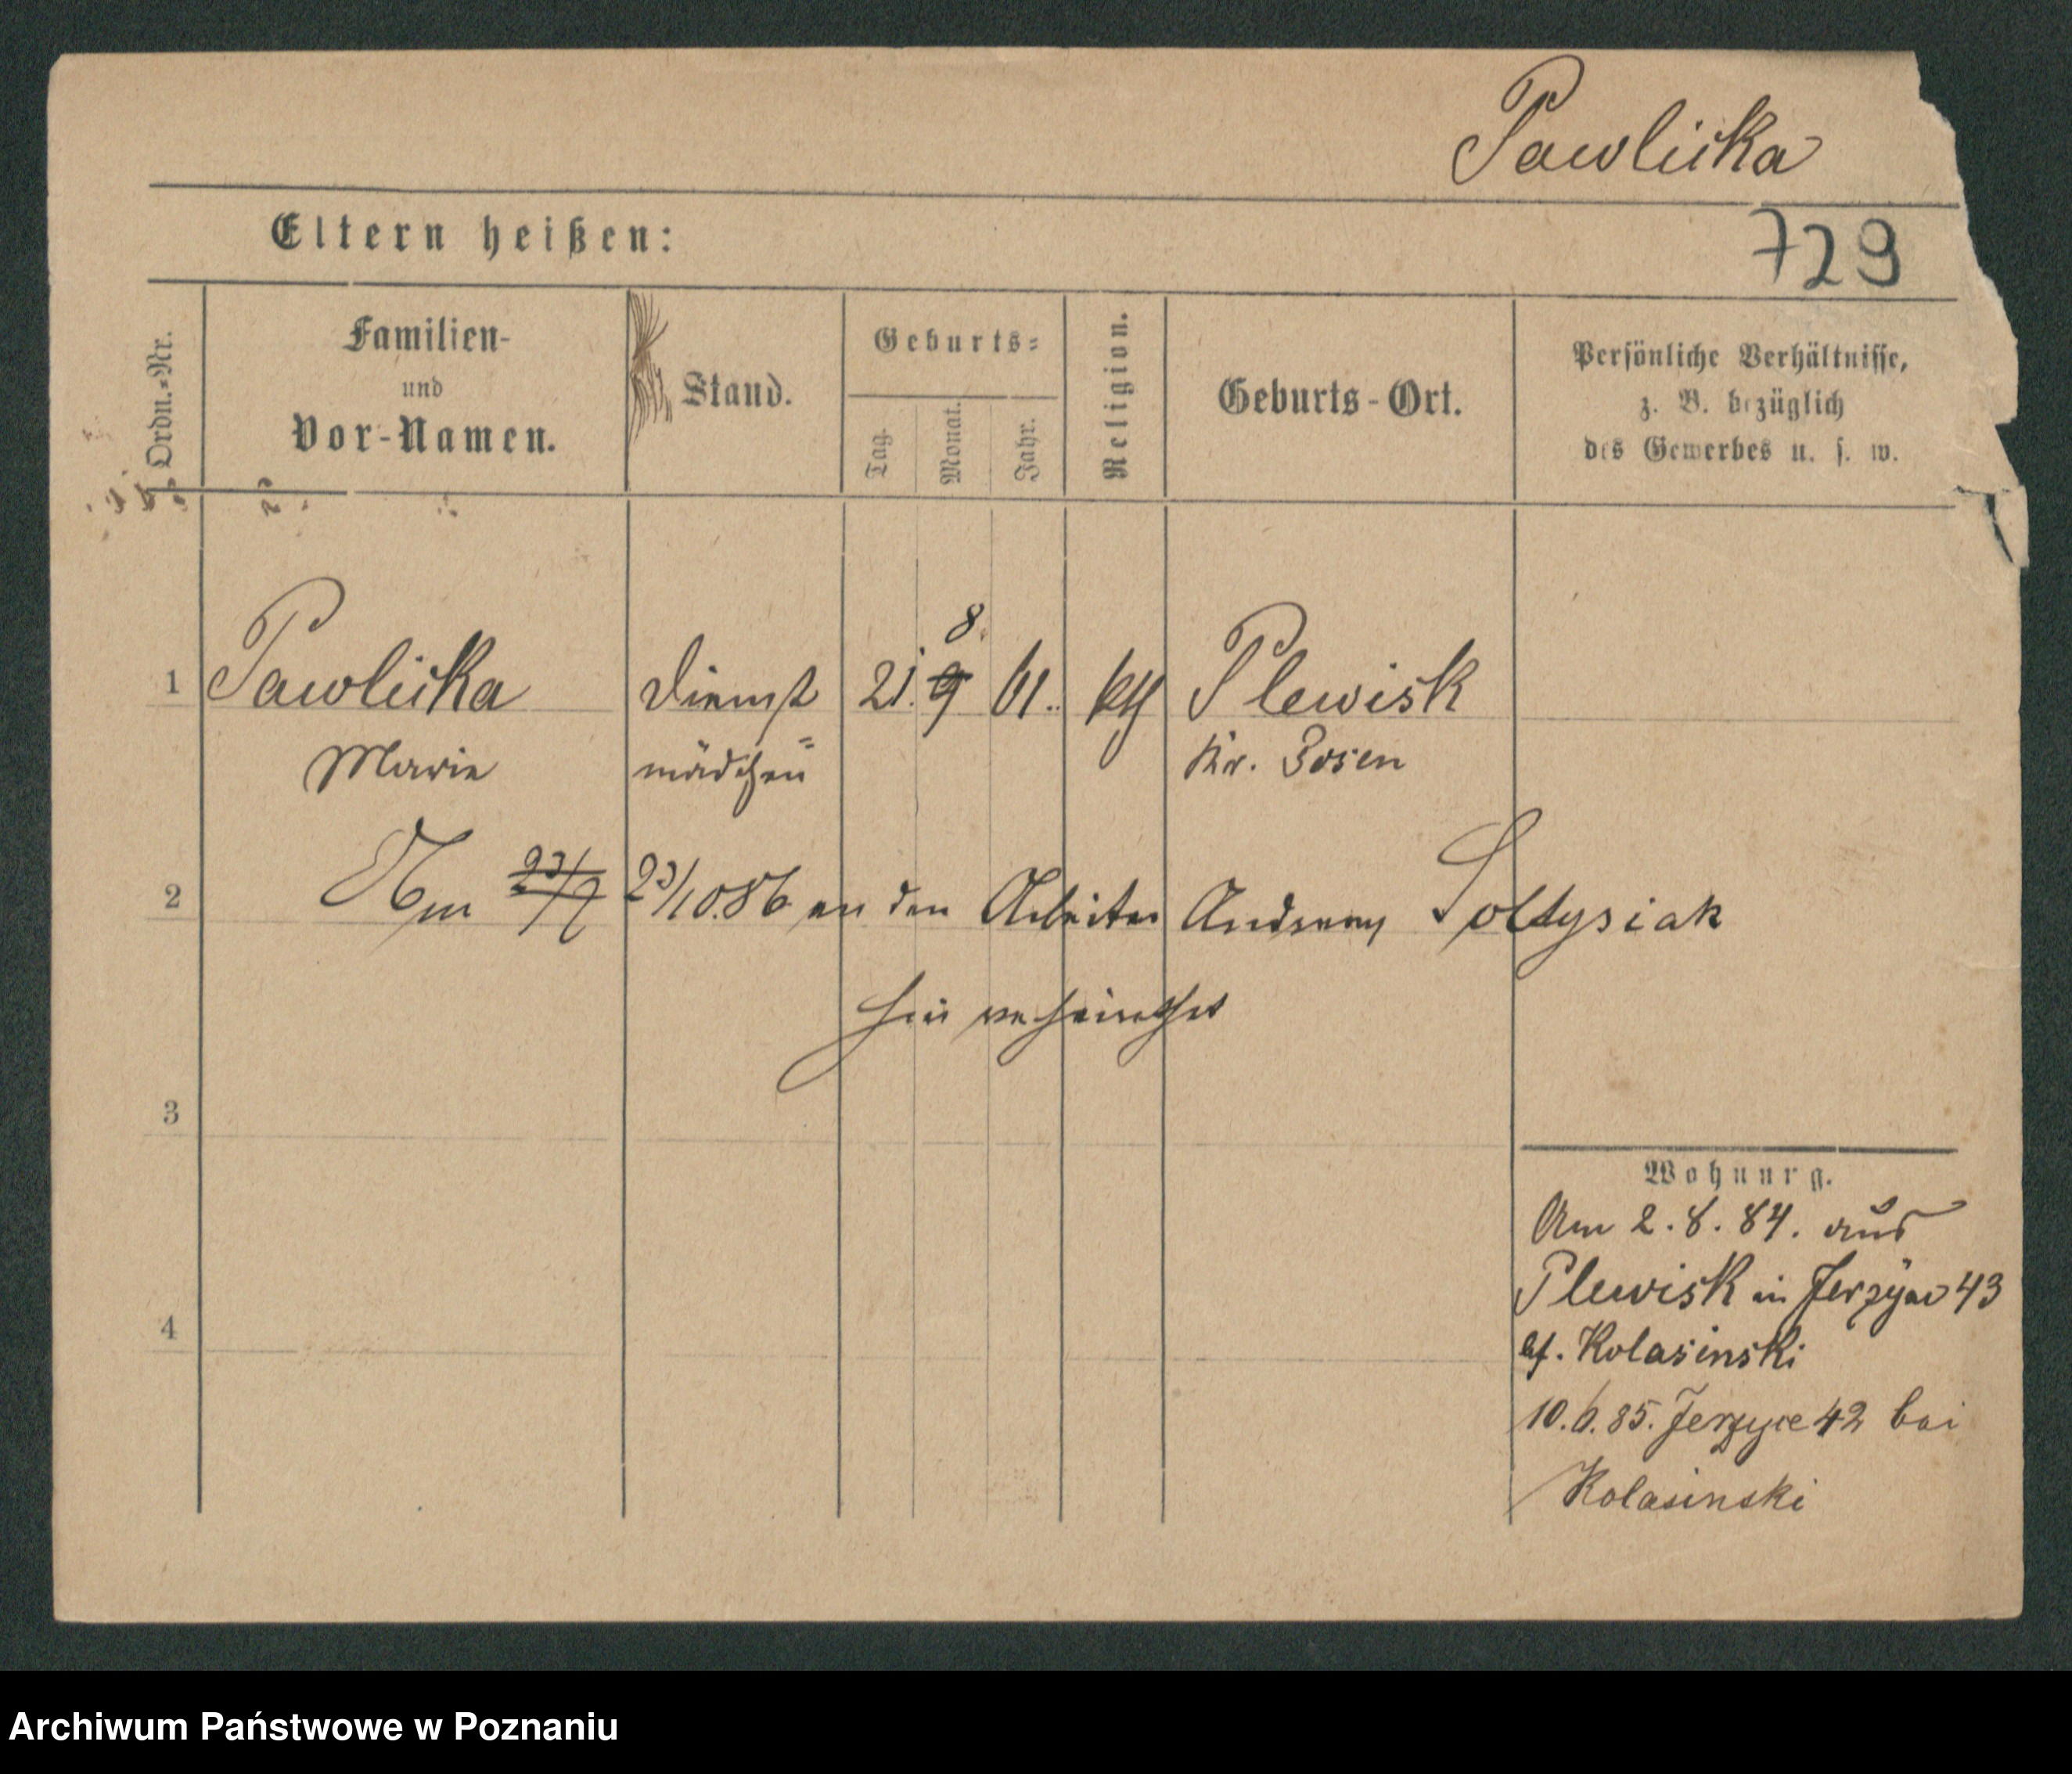 Pawlicka
Eltern heißen:
729
Ordn.=Nr.
Familien-
und
Vor-Namen.
Stand.
Geburts=
Tag.
Monat.
Jahr.
Religion.
Geburts-Ort.
Persönliche Verhältnisse,
z. B. bezüglich
des Gewerbes u. s. w.
8.
1 Pawlicka Dienst 21. 9 61. kth Plewisk
Marie mädchen Kr. Posen
2 Am 23/7 23/10.86. an den Arbeiter Andreas Soltysiak
hier verheirathet
3
Wohnung.
Am 2.8.84. aus
Plewisk in Jerzyce 43
4
bf. Kolasinski
10.6.85. Jerzyce 42 bei
Kolasinski
Archiwum Państwowe w Poznaniu